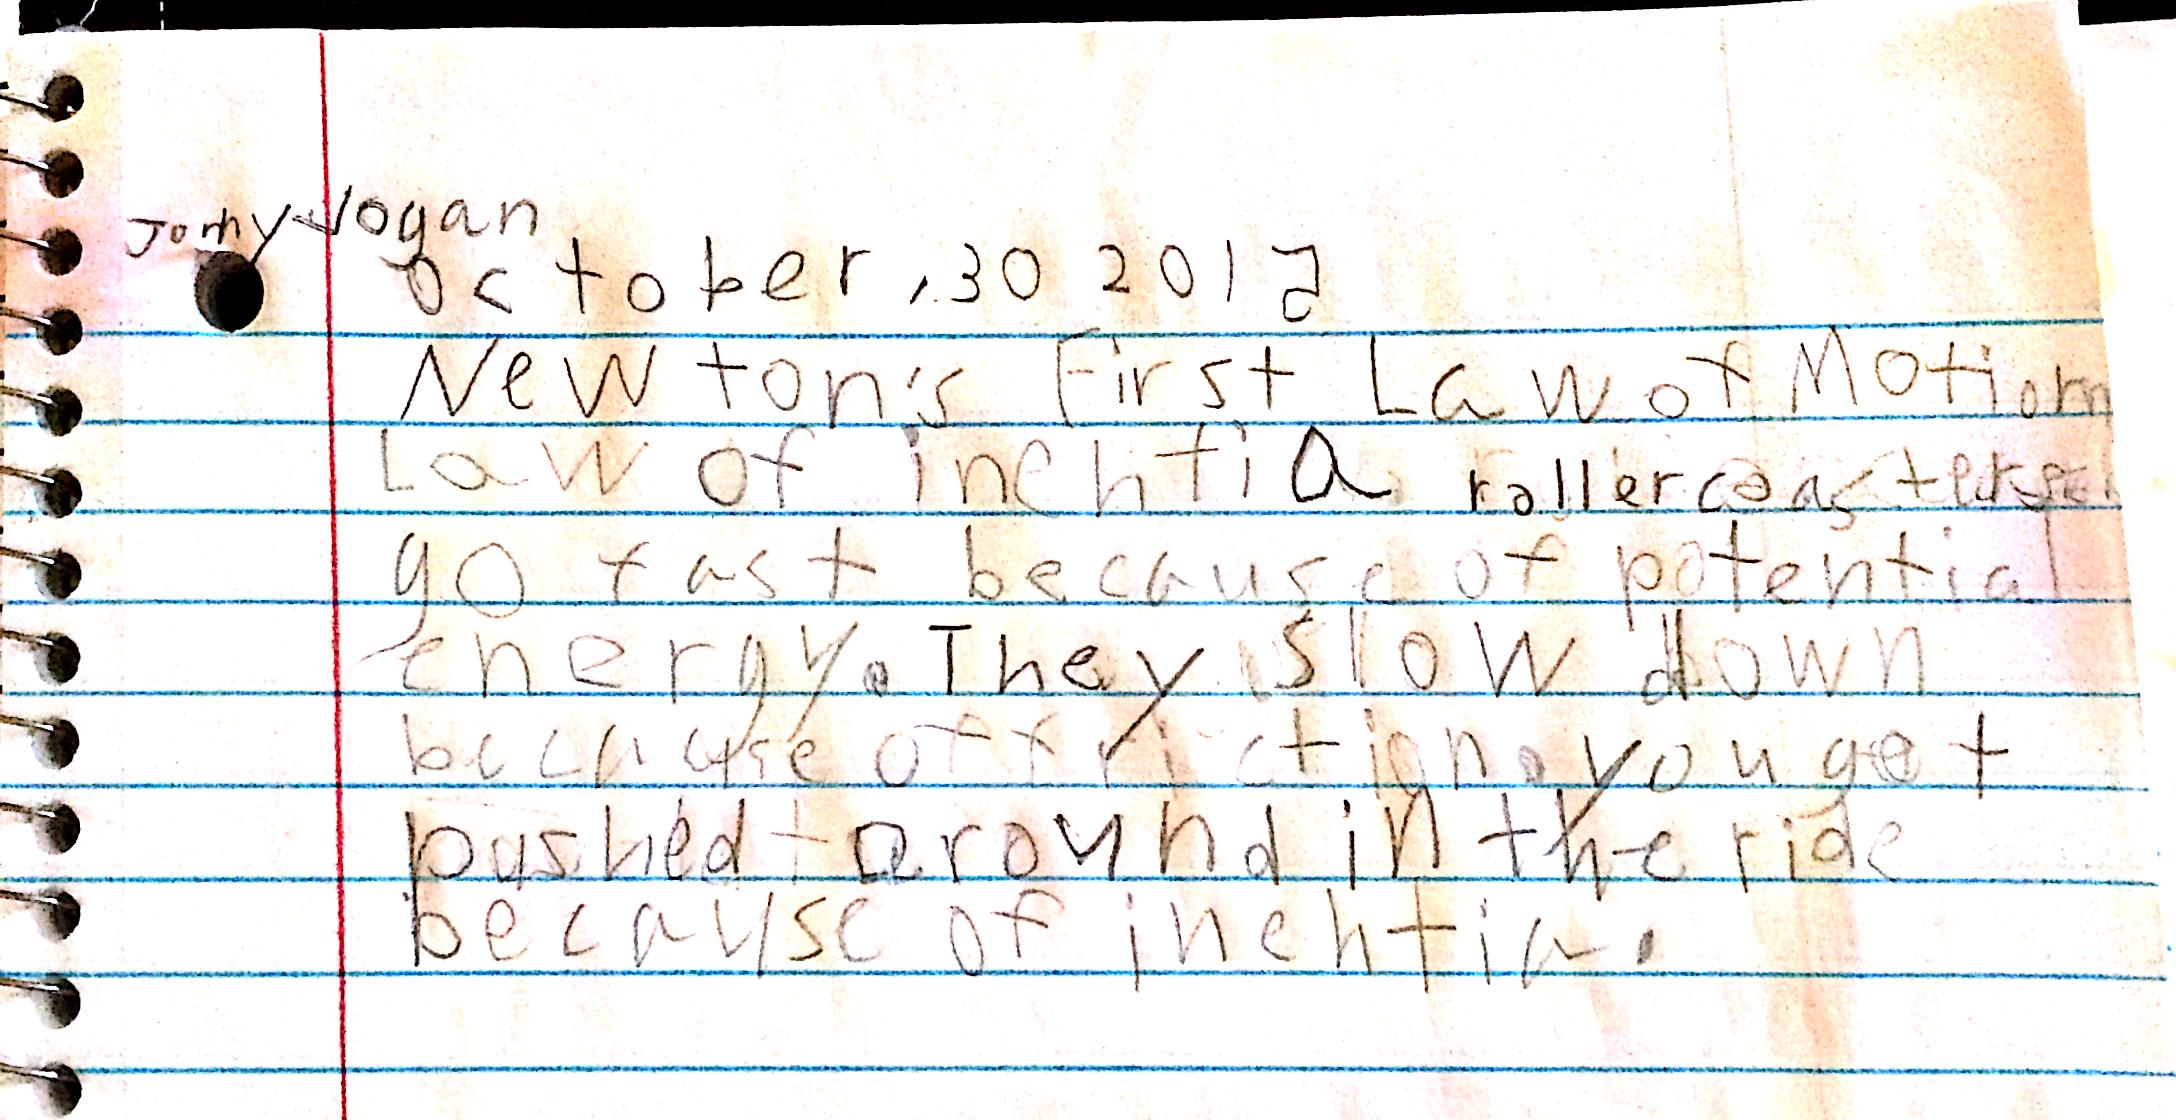 Jomy Jogan
October, 30 2012
Newton's First Law of Motion
Law of inehtia rollercoasters
go fast because of potential
energy. They slow down
because of friction. you get
pushed around in the ride
because of inehtia.